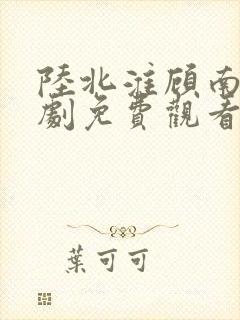 陸北淮顧南
劇免費觀看
葉可可